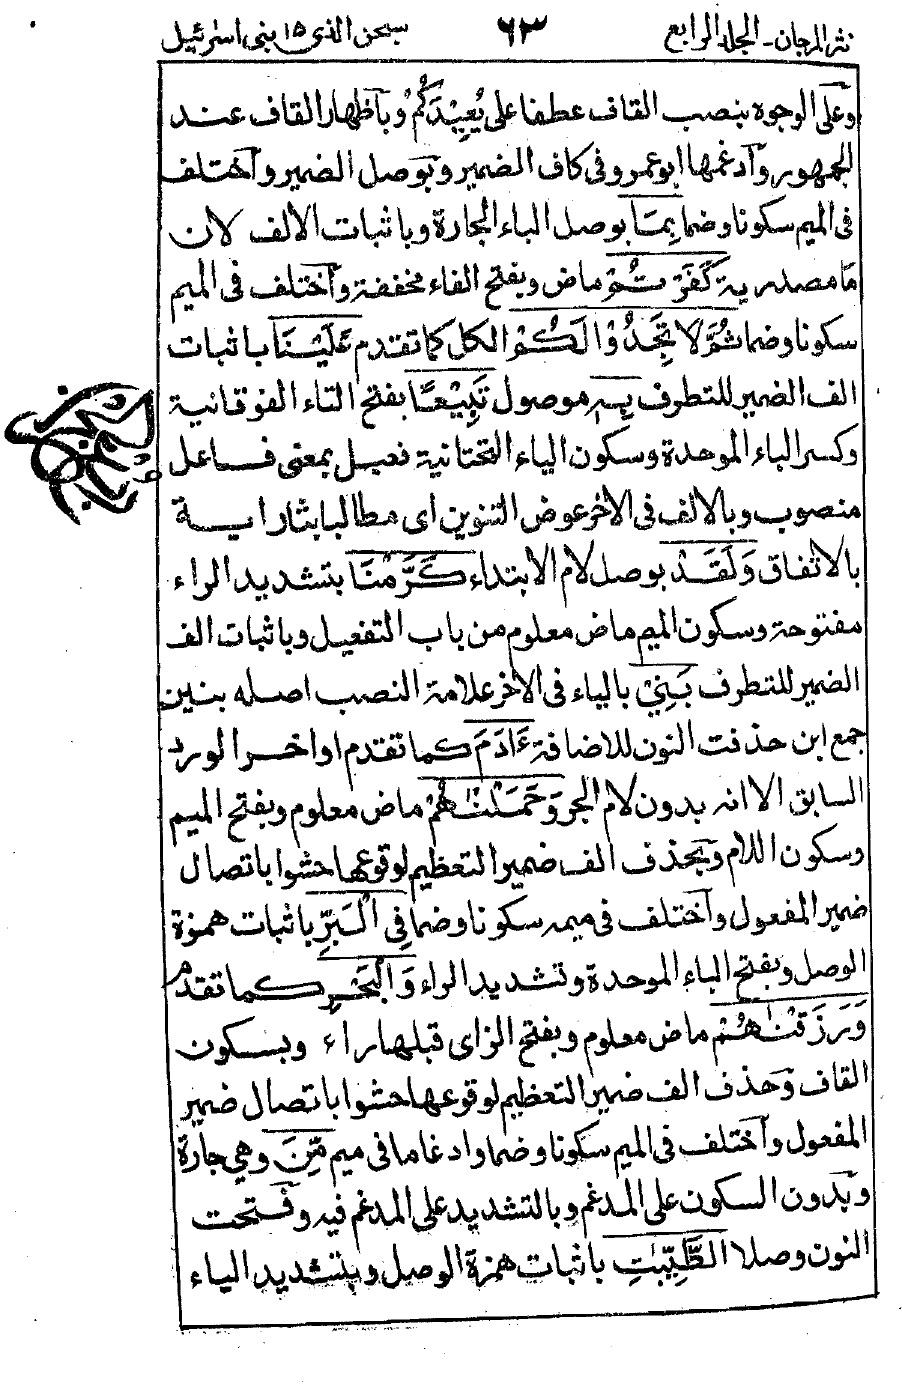 نثر المرجان - الجلد الرابع ٦٣ سبحن الذى ١٥ بنى اسرئيل
وعلى الوجوه بنصب القاف عطفا على يُعِيْدَكُمْ وباظهار القاف عند
الجمهور وادغمها ابو عمرو فى كاف الضمير وبوصل الضمير واختلف
فى الميم سكونا وضما بِمَا بوصل الباء الجارة وباثبات الالف لان
ما مصدرية كَفَرْتُمْ ماض وبفتح الفاء مخففة واختلف فى الميم
سكونا وضما ثُمَّ لَا تَجِدُوْا لَكُمْ الكل كما تقدم عَلَيْنَا باثبات
الف الضمير للتطرف بِهٖ موصول تَبِيْعًا بفتح التاء الفوقانية
وكسر الباء الموحدة وسكون الياء التحتانية فعيل بمعنى فاعل
منصوب وبالالف فى الاخر عوض التنوين اى مطالبا بثار اية
بالاتفاق وَلَقَدْ بوصل لام الابتداء كَرَّمْنَا بتشديد الراء
مفتوحة وسكون الميم ماض معلوم من باب التفعيل وباثبات الف
الضمير للتطرف بَنِيْ بالياء فى الاخر علامة النصب اصله بنين
جمع ابن حذفت النون للاضافة ءَادَمَ كما تقدم اواخر الورد
السابق الا انه بدون لام الجر وَحَمَلْنٰهُمْ ماض معلوم وبفتح الميم
وسكون اللام وبحذف الف ضمير التعظيم لوقوعها حشوا باتصال
ضمير المفعول واختلف فى ميمه سكونا وضما فِى الْبَرِّ باثبات همزة
الوصل وبفتح الباء الموحدة وتشديد الراء وَالْبَحْرِ كما تقدم
وَرَزَقْنٰهُمْ ماض معلوم وبفتح الزاى قبلها راء وبسكون
القاف وحذف الف ضمير التعظيم لوقوعها حشوا باتصال ضمير
المفعول واختلف فى الميم سكونا وضما وادغاما فى ميم مِّنَ وهى جارة
وبدون السكون على المدغم وبالتشديد على المدغم فيه وفتحت
النون وصلا الطَّيِّبٰتِ باثبات همزة الوصل وبتشديد الياء